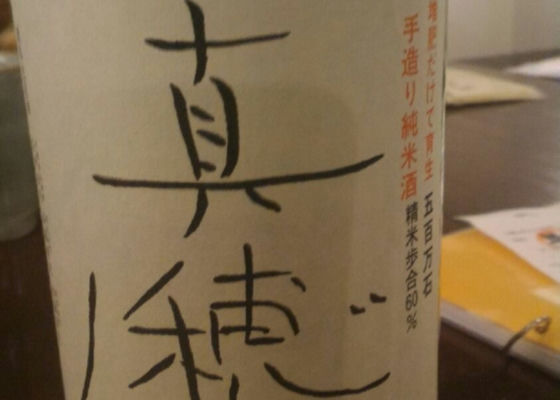 堆肥だけで育生 五百万石
手造り純米酒 精米歩合60%
真穂